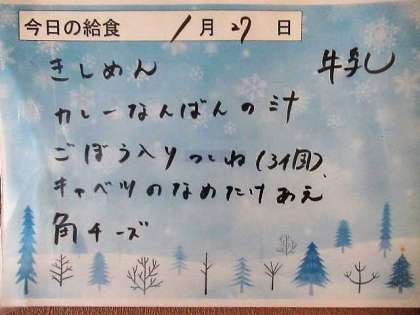 今日の給食 1月27日
きしめん 牛乳
カレーなんばんの汁
ごぼう入りつくね(3個)
キャベツのなめたけあえ
角チーズ